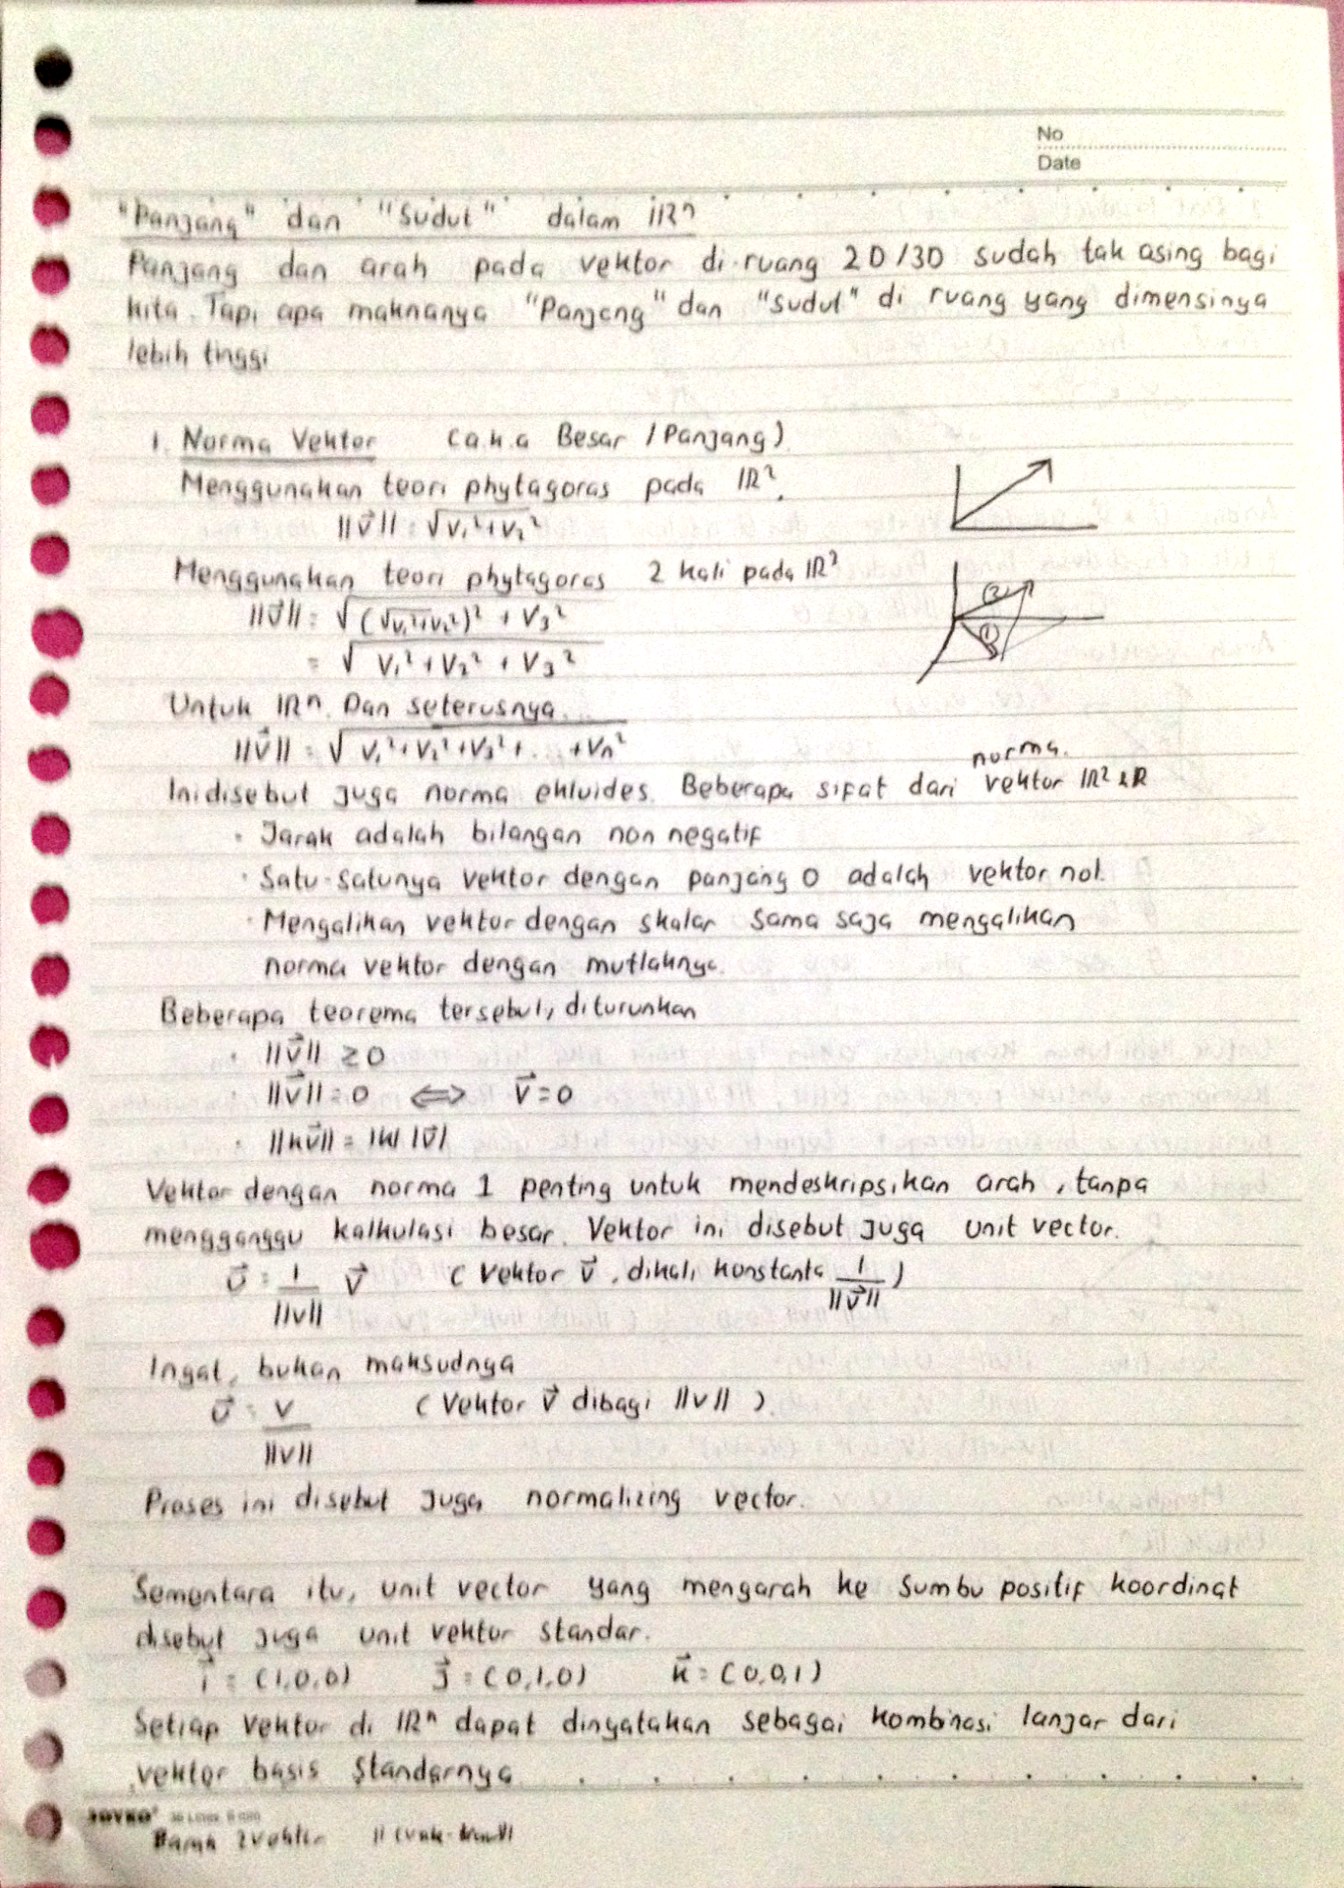 No
Date
"Panjang" dan "Sudut" dalam ℝⁿ
Panjang dan arah pada vektor di ruang 2D/3D sudah tak asing bagi
kita. Tapi apa maknanya "Panjang" dan "Sudut" di ruang yang dimensinya
lebih tinggi
1. Norma Vektor (a.k.a Besar / Panjang)
Menggunakan teori phytagoras pada ℝ².
||v⃗|| = √(v₁² + v₂²)
Menggunakan teori phytagoras 2 kali pada ℝ³
||v⃗|| = √((√(v₁²+v₂²))² + v₃²)
= √(v₁² + v₂² + v₃²)
②
①
Untuk ℝⁿ. Dan seterusnya..
||v⃗|| = √(v₁² + v₂² + v₃² + ... + vₙ²)
norma.
Ini disebut juga norma ekluides. Beberapa sifat dari vektor ℝ² & ℝ
· Jarak adalah bilangan non negatif
· Satu-satunya vektor dengan panjang 0 adalah vektor nol.
· Mengalikan vektor dengan skalar sama saja mengalikan
norma vektor dengan mutlaknya.
Beberapa teorema tersebut, diturunkan
· ||v⃗|| ≥ 0
· ||v⃗|| = 0 ⟺ v⃗ = 0
· ||kv⃗|| = |k| |v⃗|
Vektor dengan norma 1 penting untuk mendeskripsikan arah, tanpa
mengganggu kalkulasi besar. Vektor ini disebut juga unit vector.
u⃗ = 1/||v|| v⃗ (Vektor v⃗, dikali konstanta 1/||v⃗||)
Ingat, bukan maksudnya
u⃗ = v/||v|| (Vektor v⃗ dibagi ||v||).
Proses ini disebut juga normalizing vector.
Sementara itu, unit vector yang mengarah ke sumbu positif koordinat
disebut juga unit vektor standar.
i⃗ = (1,0,0) j⃗ = (0,1,0) k⃗ = (0,0,1)
Setiap vektor di ℝⁿ dapat dinyatakan sebagai kombinasi lanjar dari
vektor basis standarnya
JOYKO